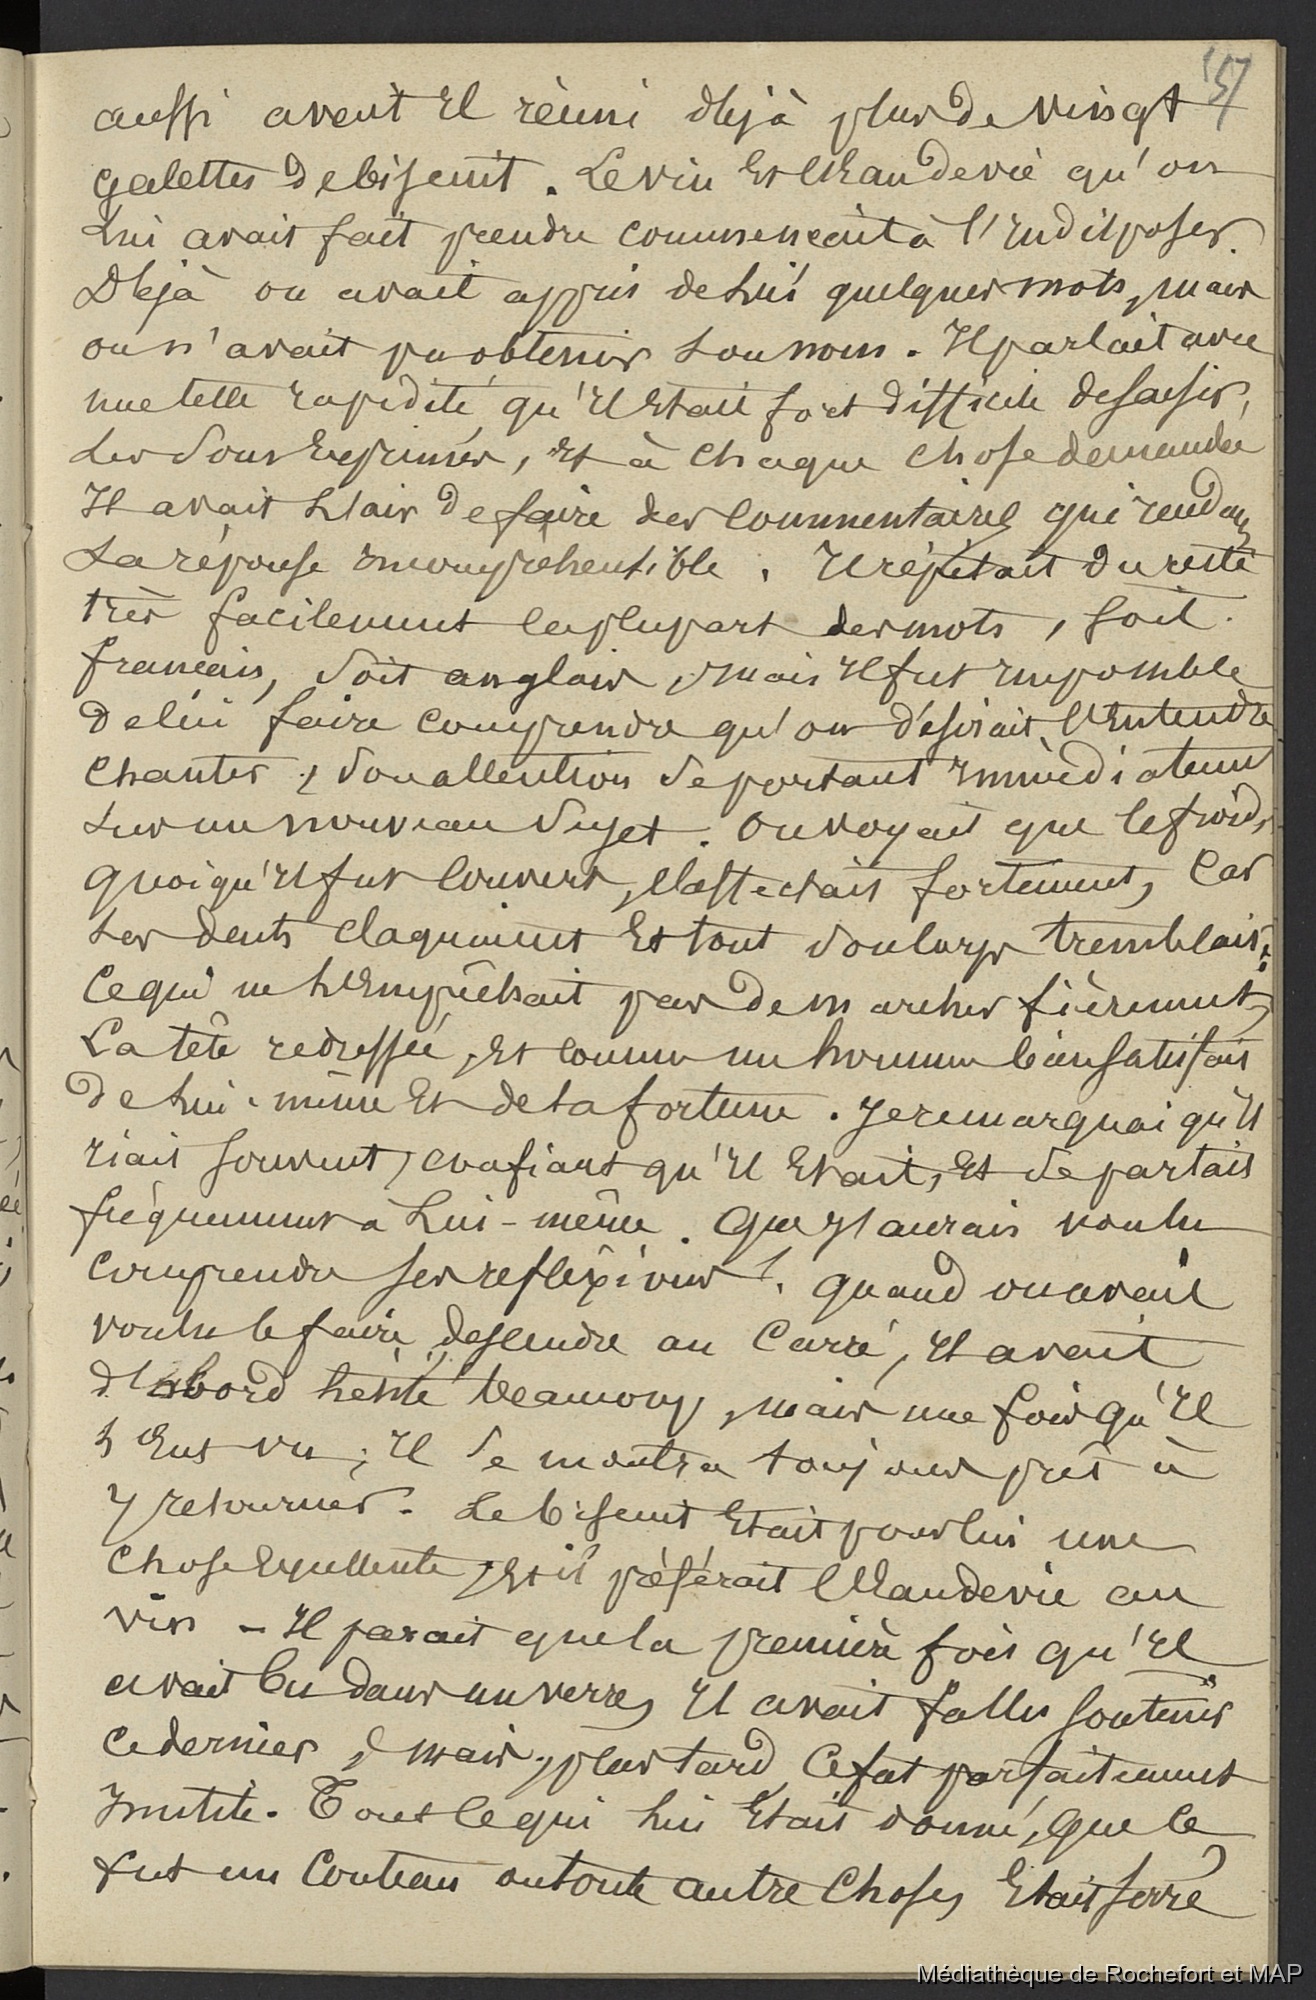 57
aussi avait il réuni dejà plus de vingt
galettes de biscuit. Le vin et l'Eau de vie qu'on
lui avait fait prendre commencait à l'indisposer.
Dejà on avait appris de lui quelques mots, mais
on n'avait pu obtenir son nom. Il parlait avec
une telle rapidité, qu'il était fort difficile de saisir,
les sons exprimés, et à chaque chose demandée
Il avait l'air de faire des commentaires qui rendaient
sa réponse incomprehensible. Il répétait du reste
très facilement la plupart des mots, soit
francais, soit anglais, mais il fut impossible
de lui faire comprendre qu'on désirait l'entendre
chanter, son attention se portant immédiatement
sur un nouveau sujet. On voyait que le froid,
quoiqu'il fut couvert, l'affectait fortement, car
ses dents claquaient et tout son corps tremblait;
ce qui ne l'empêchait pas de marcher fièrement,
la tête redressée, et comme un homme bien satisfait
de lui-même et de sa fortune. Je remarquai qu'il
riait souvent, confiant qu'il était, et se parlait
fréquemment à lui-même. Que j'aurais voulu
comprendre ses reflexions!. Quand on avait
voulu le faire descendre au Carré, il avait
d'abord hésité beaucoup, mais une fois qu'il
l'eut vu, il se montra toujours prêt à
y retourner. Le biscuit était pour lui une
chose excellente, et il préférait l'Eau de vie au
vin – Il parait que la première fois qu'il
avait bu dans un verre, il avait fallu soutenir
ce dernier, mais, plus tard, ce fut parfaitement
inutile. Tout ce qui lui était donné, que ce
fut un couteau ou toute autre chose, était serré
Médiathèque de Rochefort et MAP